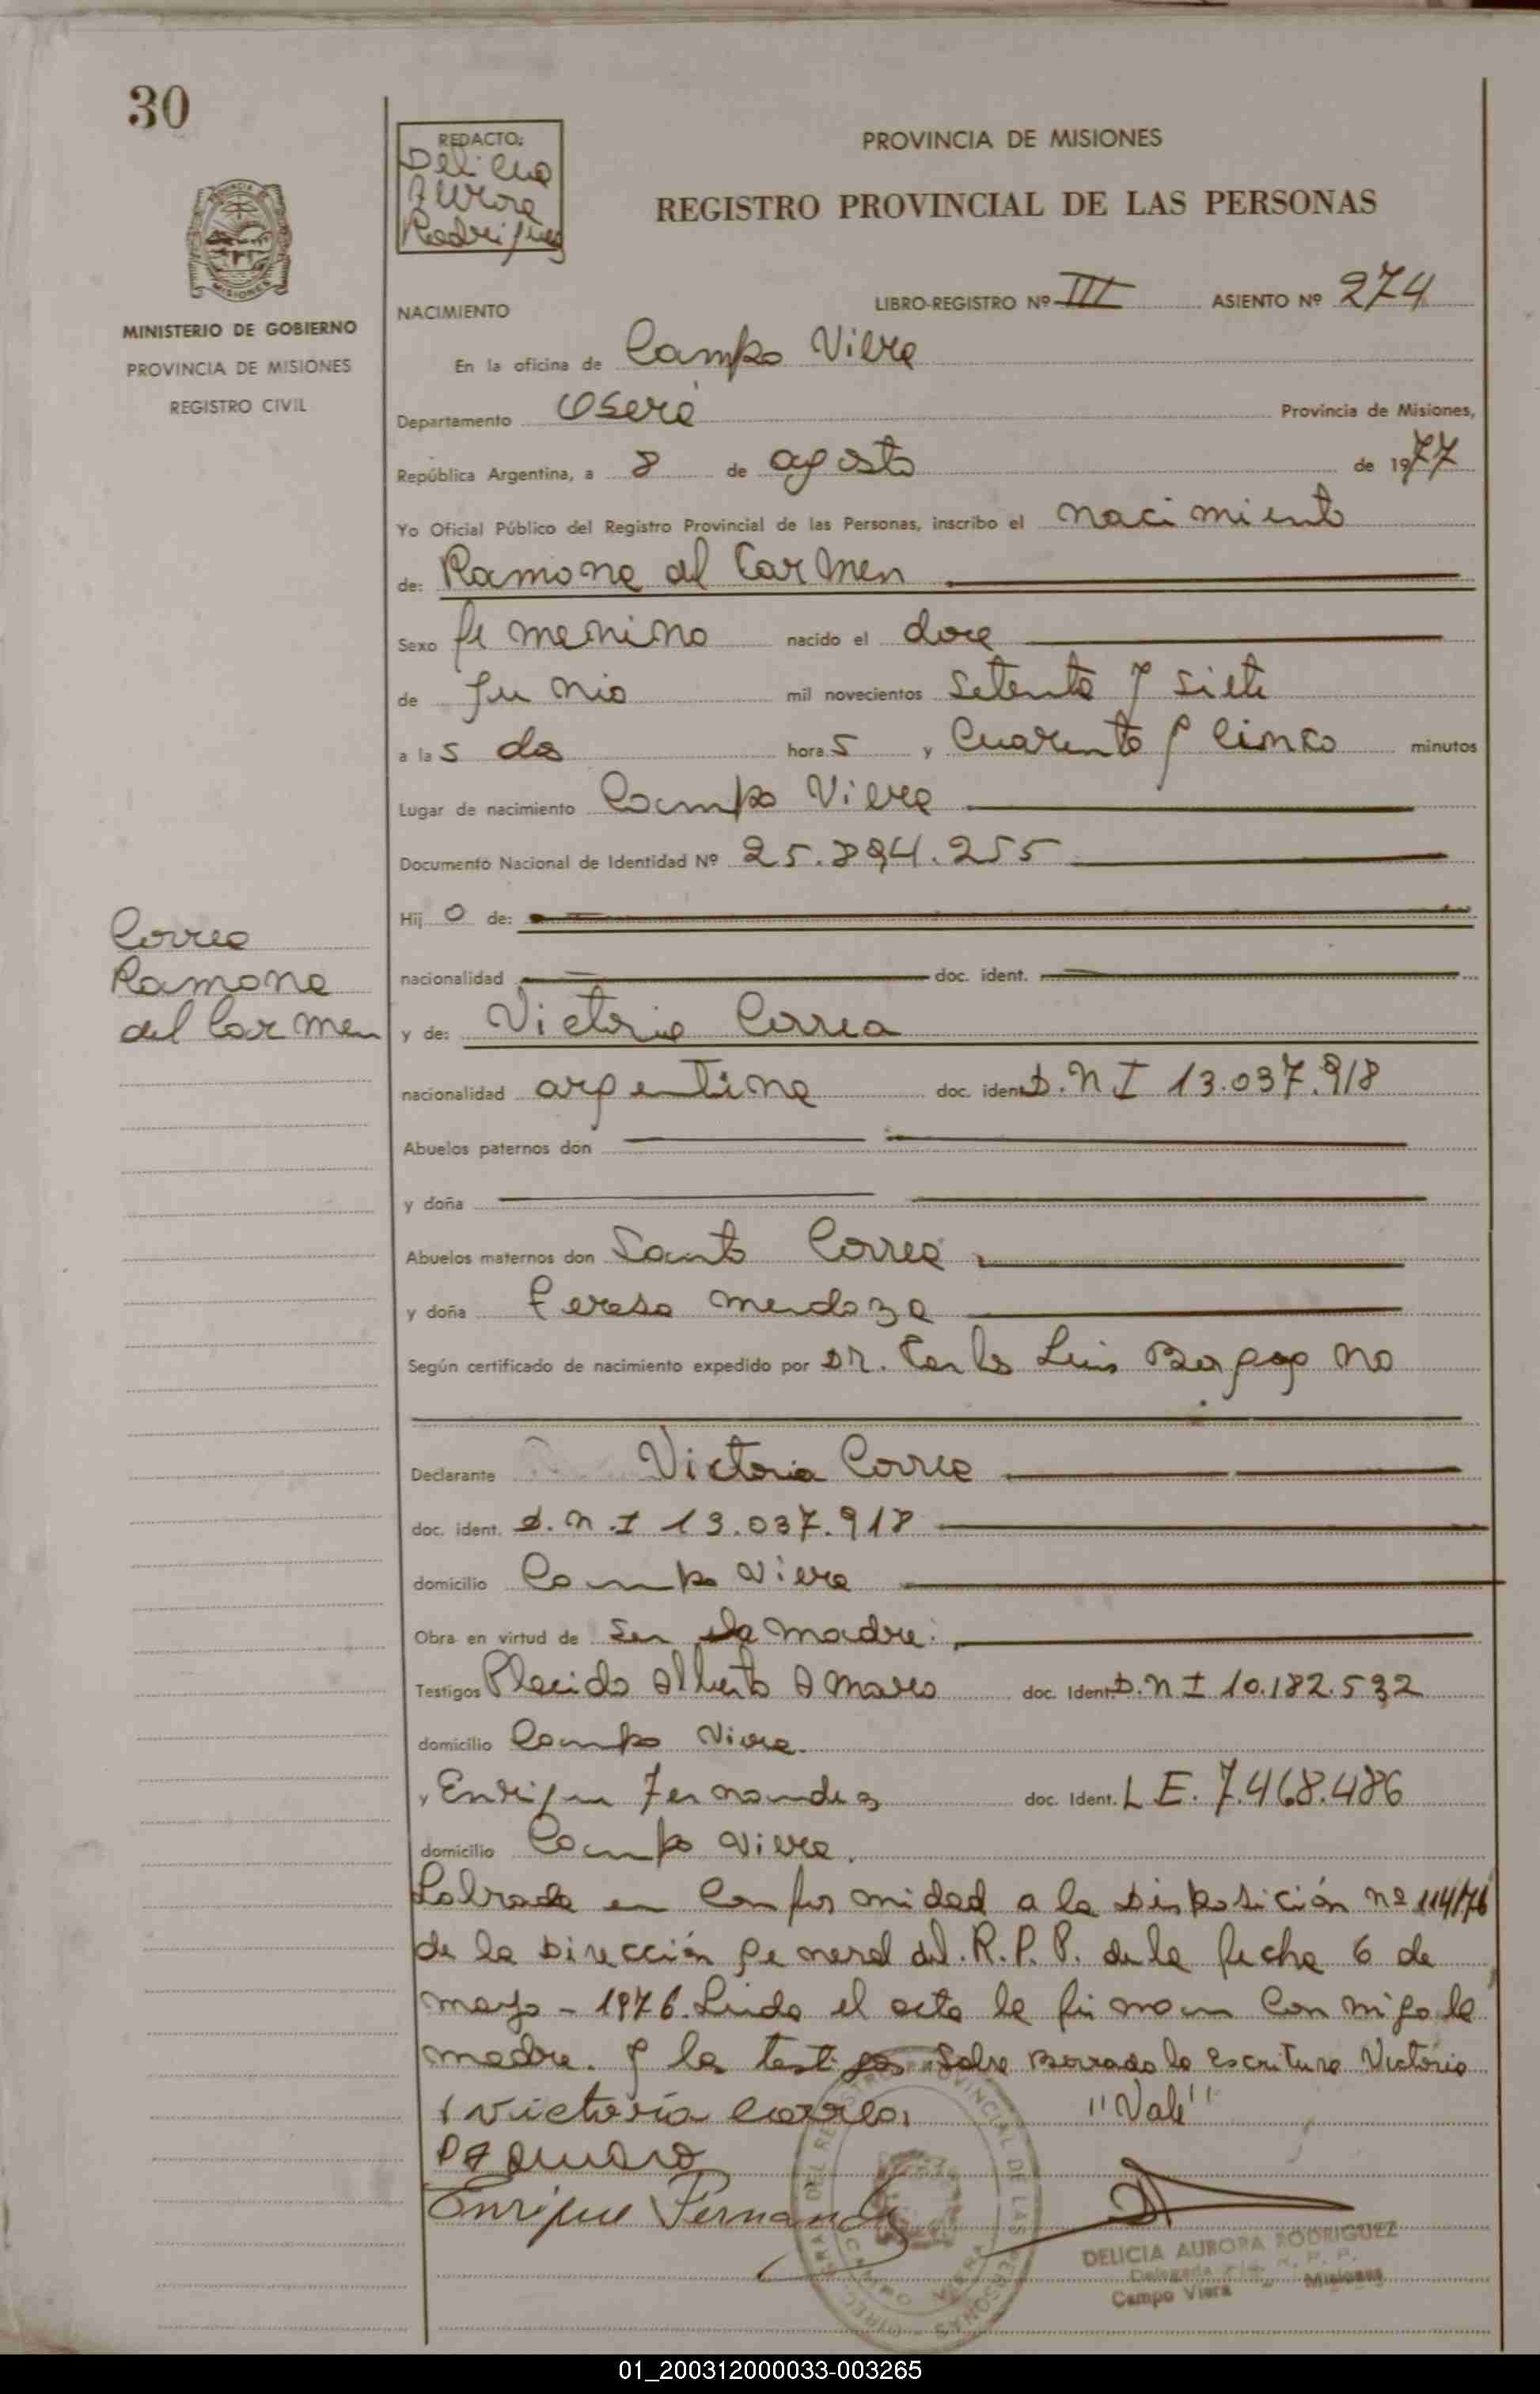 30
REDACTO:
Delicia
Aurora
Rodriguez
PROVINCIA DE MISIONES
REGISTRO PROVINCIAL DE LAS PERSONAS
MISIONES
MINISTERIO DE GOBIERNO
PROVINCIA DE MISIONES
REGISTRO CIVIL
NACIMIENTO
LIBRO-REGISTRO Nº III ASIENTO Nº 274
En la oficina de Campo Viera
Departamento Oberá Provincia de Misiones,
República Argentina, a 8 de agosto de 1977
Yo Oficial Público del Registro Provincial de las Personas, inscribo el nacimiento
de: Ramona del Carmen
Sexo femenino nacido el doce
de Junio mil novecientos setenta y siete
a las dos horas y cuarenta y cinco minutos
Lugar de nacimiento Campo Viera
Documento Nacional de Identidad Nº 25.894.255
Hij o de:
nacionalidad doc. ident.
Correa
Ramona
del Carmen
y de: Victoria Correa
nacionalidad argentina doc. ident. D.N I 13.037.918
Abuelos paternos don
y doña
Abuelos maternos don Santo Correa
y doña Teresa Mendoza
Según certificado de nacimiento expedido por DR. Carlos Luis
Declarante Victoria Correa
doc. ident. D.N.I 13.037.918
domicilio Campo Viera
Obra en virtud de ser la madre.
Testigos Placido Alberto Amaro doc. Ident. D.N I 10.182.532
domicilio Campo Viera.
y Enrique Fernandez doc. Ident. L E. 7.468.486
domicilio Campo Viera.
Labrada en conformidad a la Disposición nº 114/76
de la Dirección general del R.P.P. de la fecha 6 de
mayo - 1976. Leida el acta la firman conmigo la
madre. y los testigos Sobre Borrado la escritura Victoria
Victoria Correa "Vale"
P A Amaro
Enrique Fernandez
DELICIA AURORA RODRIGUEZ
Delegada R. P. P.
Campo Viera Misiones
01_200312000033-003265